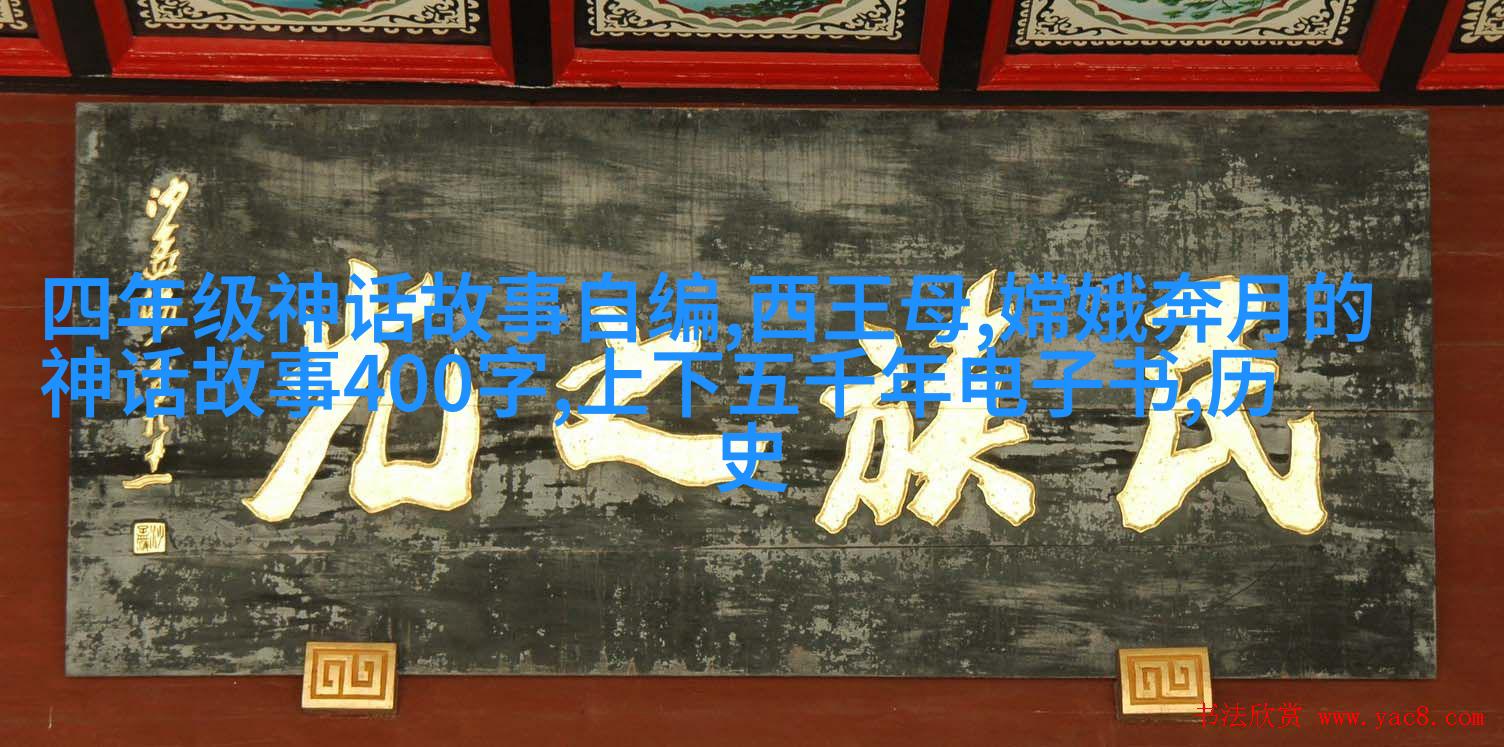 四年级神话故事自编,西王母,嫦娥奔月的
神话故事400字,上下五千年电子书,历
史
民族之光
书法欣赏 www.yac8.com